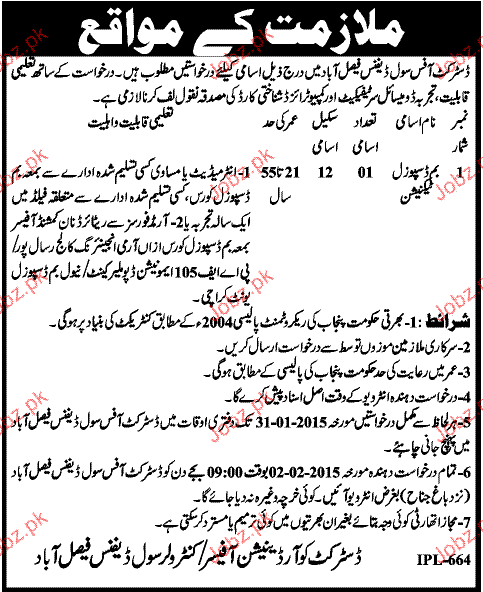 ملازمت کے مواقع
ڈسٹرکٹ آفس سول ڈیفنس فیصل آباد میں درج ذیل اسامی کیلئے درخواستیں مطلوب ہیں۔ درخواست کے ساتھ تعلیمی
قابلیت، تجربہ ڈومیسائل سرٹیفکیٹ اور کمپیوٹرائزڈ شناختی کارڈ کی مصدقہ نقول لف کرنا لازمی ہے۔
نمبر شمار نام اسامی تعداد اسامی سکیل اسامی عمر کی حد تعلیمی قابلیت و اہلیت
1 بم ڈسپوزل ٹیکنیشن 01 12 21 تا 55 سال 1- انٹرمیڈیٹ یا مساوی کسی تسلیم شدہ ادارے سے بمعہ بم
ڈسپوزل کورس، کسی تسلیم شدہ ادارے سے متعلقہ فیلڈ میں
ایک سالہ تجربہ یا 2- آرمڈ فورسز سے ریٹائرڈ نان کمشنڈ آفیسر
بمعہ بم ڈسپوزل کورس ازاں آرمی انجینئرنگ کالج رسال پور/
پی اے ایف 105 ایمونیشن ڈپو ملیر کینٹ/ نیول بم ڈسپوزل
یونٹ کراچی۔
شرائط: 1- بھرتی حکومت پنجاب کی ریکروٹمنٹ پالیسی 2004ء کے مطابق کنٹریکٹ کی بنیاد پر ہوگی۔
2- سرکاری ملازمین موزوں توسط سے درخواست ارسال کریں۔
3- عمر میں رعایت کی حد حکومت پنجاب کی پالیسی کے مطابق ہوگی۔
4- درخواست دہندہ انٹرویو کے وقت اصل اسناد پیش کرے گا۔
5- ہر لحاظ سے مکمل درخواستیں مورخہ 31-01-2015 تک دفتری اوقات میں ڈسٹرکٹ آفس سول ڈیفنس فیصل آباد
میں پہنچ جانی چاہئے۔
6- تمام درخواست دہندہ مورخہ 02-02-2015 بوقت 09:00 بجے دن کو ڈسٹرکٹ آفس سول ڈیفنس فیصل آباد
(نزد باغ جناح) بغرض انٹرویو آئیں۔ کوئی خرچہ وغیرہ نہ دیا جائے گا۔
7- مجاز اتھارٹی کوئی وجہ بتائے بغیر ان بھرتیوں میں کوئی ترمیم یا مسترد کر سکتی ہے۔
ڈسٹرکٹ کوآرڈینیشن آفیسر/ کنٹرولر سول ڈیفنس فیصل آباد
IPL-664
Jobz.pk